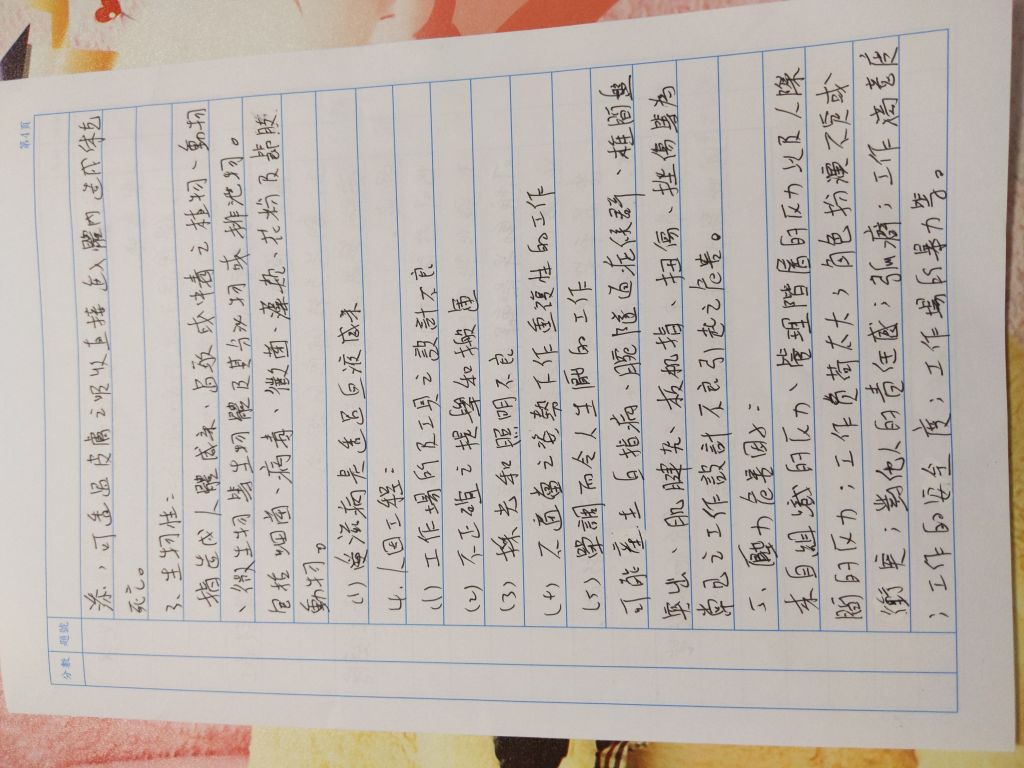 第4頁
分數 題號
染，可透過皮膚之吸收直接進入體內造成
死亡。
3、生物性：
指造成人體感染、過敏或中毒之植物、動物
、微生物等生物體及其分泌物或排泄物。
包括細菌、病毒、黴菌、藻類、花粉及節肢
動物。
(1) 愛滋病是透過血液感染
4、人因工程：
(1) 工作場所及工具之設計不良
(2) 不正確之提舉和搬運
(3) 採光和照明不良
(4) 不適當之姿勢下作重複性的工作
(5) 單調而令人生厭的工作
可能產生白指病、腕隧道症候群、椎間盤
突出、肌腱炎、板機指、扭傷、挫傷等為
常見之工作設計不良引起之危害。
5、壓力危害因子：
來自組織的壓力、管理階層的壓力以及人際
間的壓力；工作負荷太大；角色扮演不良或
衝突；對他人的責任感；孤癖；工作滿意度
；工作的安全度；工作場所暴力等。